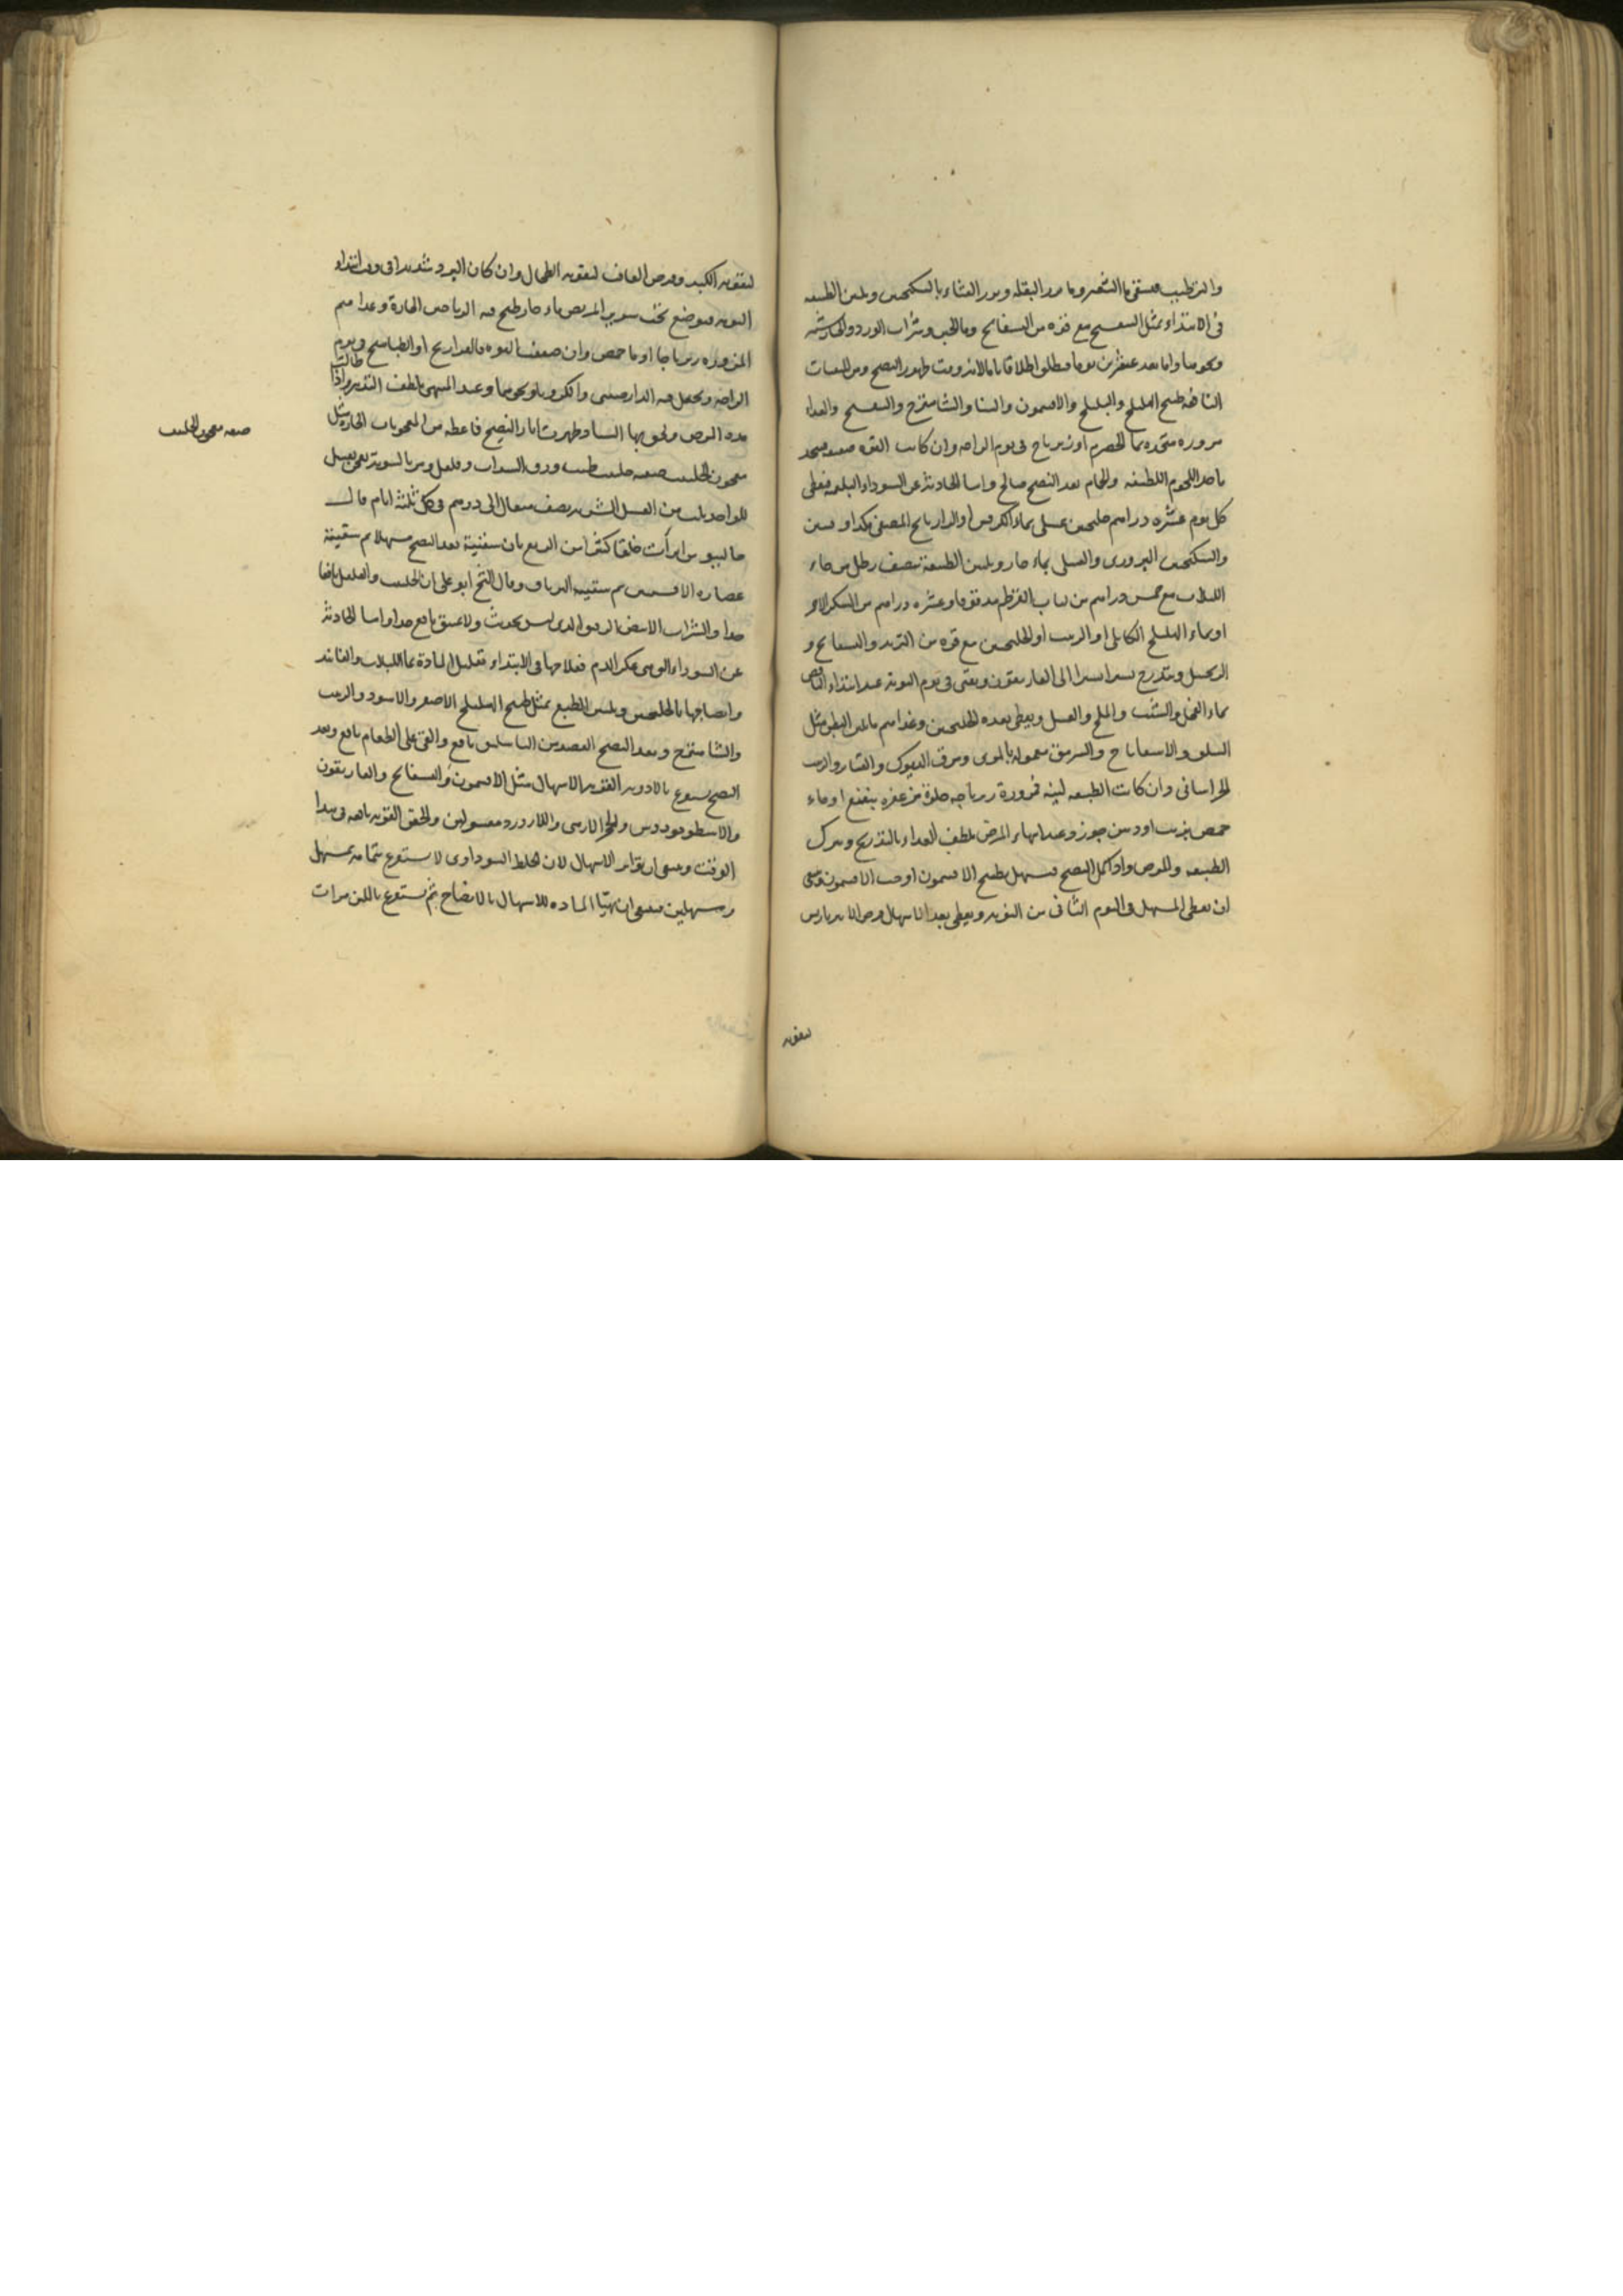 والترطيب فيسقى ماء الشعير وماء بزر البقلة وبزر القثاء بالسكنجبين ويلين الطبيعة
في الابتداء بمثل البنفسج مع قوة من البسفايج وماء الجبن وشراب الورد
ونحوها واما بعد عشرين يوما فيطلق اطلاقا تاما لانه وقت ظهور النضج ومن المسهلات
النافعة طبيخ الهليلج والبليلج والافتيمون والسنا والشاهترج والبنفسج والغذاء
مزورة متخذة بماء الحصرم او زيرباج في يوم الراحة وان كانت القوة ضعيفة
باحد اللحوم اللطيفة والحمام بعد النضج صالح واما الحادثة عن السوداء البلغمية فيعطى
كل يوم عشرة دراهم جلنجبين عسلي بماء الكرفس او الرازيانج المصفى
والسكنجبين البزوري والعسلي بماء حار ويلين الطبيعة بنصف رطل من ماء
اللبلاب مع خمس دراهم من لباب القرطم مدقوقا وعشرة دراهم من السكر الاحمر
او بماء الهليلج الكابلي او الزبيب او الجلنجبين مع قوة من التربد والبسفايج و
الزنجبيل ويتدرج يسيرا يسيرا الى الغاريقون ويقئ في يوم النوبة عند ابتداء النافض
بماء الفجل والشبت والملح والعسل ويعطى بعده الجلنجبين وغذاهم ما يلين البطن مثل
السلق والاسفاناخ والسرمق معمولة بالمري ومرق الديوك والقنابر والزبيب
الخراساني وان كانت الطبيعة لينة فمزورة زيرباجة حلوة مزعفرة بنعنع او ماء
حمص بزيت او دهن جوز وعند انتهاء المرض يلطف الغذاء بالتدريج ويترك
الطبيعة والمرض واذا كمل النضج فيسهل بطبيخ الافتيمون او حب الافتيمون وينبغي
ان يعطى المسهل في اليوم الثاني من النوبة ويعطى بعد الاسهال قرص الامبرباريس
لتقوية
لتقوية الكبد وقرص الغافت لتقوية الطحال وان كان البرد شديدا في وقت ابتداء
النوبة فيوضع تحت سرير المريض ماء حار طبخ فيه الرياحين الحارة وغذاهم
المزورة زيرباجا او ماء حمص وان ضعفت القوة فالفراريج او الطياهيج ويوم
الراحة ويجعل فيه الدارصيني والكرويا ونحوهما وعند المنتهى يلطف التدبير واذا طالت
مدة المرض ولحق بها الشتاء وظهرت اثار النضج فاعطه من المعجونات الحارة مثل
معجون الحلتيت صفته حلتيت طيب ورق السذاب وفلفل ومر بالسوية يعجن بعسل
للواحد ثلث من العسل الشربة نصف مثقال الى درهم في كل ثلثة ايام قال
جالينوس ابرأت خلقا كثيرا من الربع بان سقيته بعد النضج مسهلا ثم سقيته
عصارة الافسنتين ثم سقيته الترياق وقال الشيخ ابو علي ان الحلتيت والفلفل نافعا
جدا والشراب الابيض الرقيق الذي ليس بحديث ولا عتيق نافع جدا واما الحادثة
عن السوداء التي هي عكر الدم فعلاجها في الابتداء تقليل المادة بماء اللبلاب والفانيد
وانضاجها بالجلنجبين ويلين الطبع بمثل طبيخ الهليلج الاصفر والاسود والزبيب
والشاهترج وبعد النضج الفصد من الباسليق نافع والقئ على الطعام نافع وبعد
النضج يستفرغ بالادوية القوية الاسهال مثل الافتيمون والبسفايج والغاريقون
والاسطوخودوس والحجر الارمني واللازورد مغسولين والحقن القوية نافعة في هذا
الوقت وينبغي ان يتواتر الاسهال لان الخلط السوداوي لا يستفرغ بتمامه بمسهل
ومسهلين فينبغي ان تهيأ المادة للاسهال بالانضاج ثم يستفرغ باللين مرات
صفة معجون الحلتيت